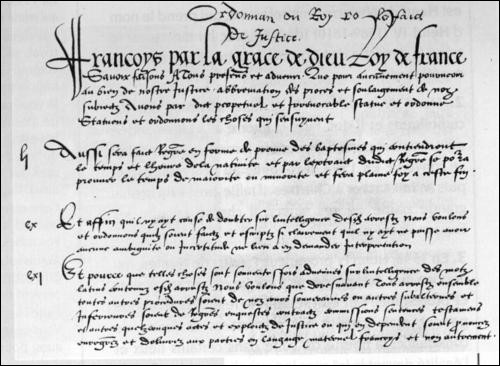 Ordonnan du Roy
de Justice
Francoys par la grace de dieu Roy de france
Savoir faisons A tous presens et advenir Que pour aucunement pourveoir
au bien de nostre Justice abbreviation des proces et soulagement de noz
subiectz Avons par edict perpetuel et irrevocable statue et ordonne
Statuons et ordonnons les choses qui sensuyvent
Aussi sera faict Regre en forme de preuve des baptesmes qui contiendront
le temps et lheure de la nativite et par lextraict dudict Regre se po ra
prouver le temps de maiorite ou minorite et fera plaine foy a ceste fin
cx Et affin quil ny ayt cause de doubter sur lintelligence desdz arrestz Nous voulons
et ordonnons quilz soient faictz et escriptz si clairement quil ny ayt ne puisse avoir
aucune ambiguite ou incertitude ne lieu a en demander interpretation
cxi Et pource que telles choses sont souventesfois advenues sur lintelligence des motz
latins contenuz esdz arrestz Nous voulons que doresnavant Tous arrestz ensemble
toutes autres procedures soient de noz cours souveraines ou autres subalternes et
inferieures soient de Regres enquestes contractz commissions sentences testamens
et autres quelzconques actes et exploictz de Justice ou qui en dependent soient prononcez
enregrez et delivrez aux parties en langaige maternel francoys et non autrement